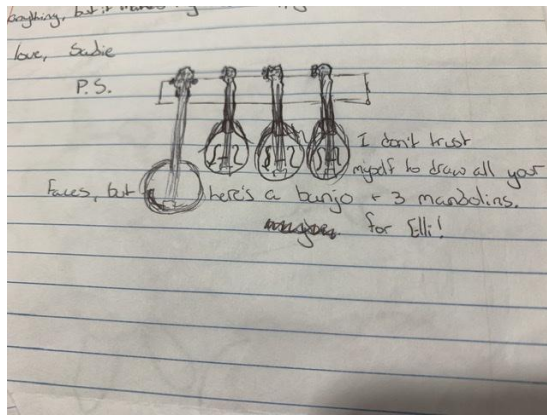 anything, but it makes
love, Sadie
P.S.
I don't trust
myself to draw all your
faces, but here's a banjo + 3 mandolins.
for Elli!